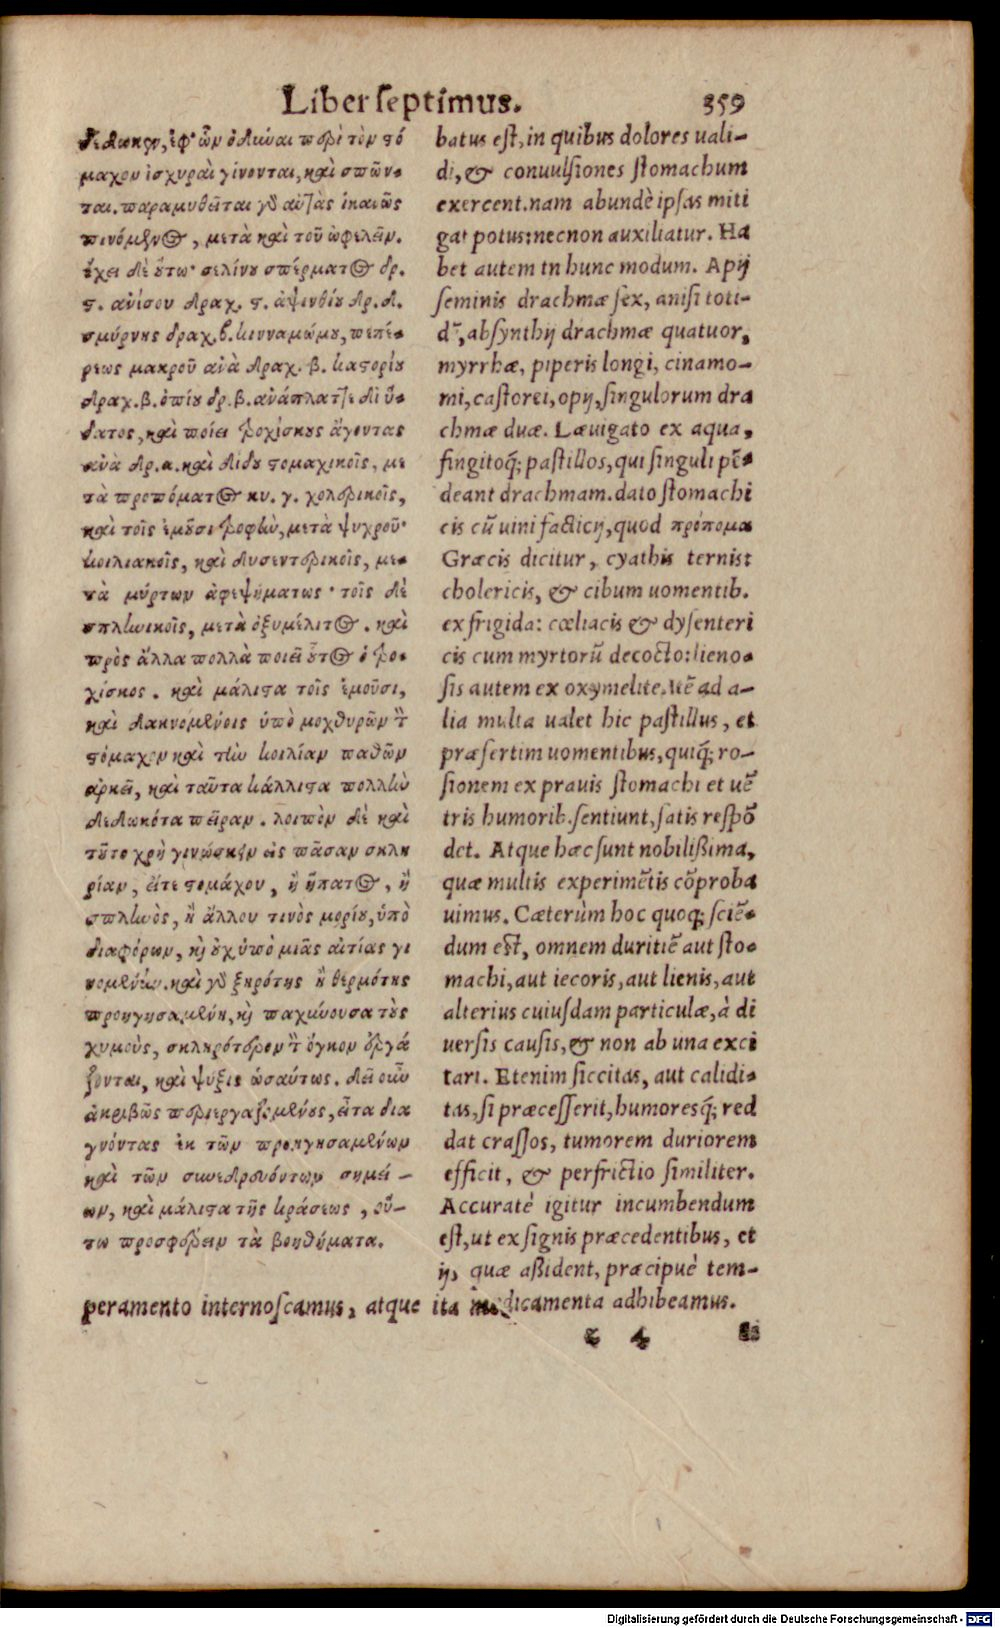 Liber septimus. 359
δέδωκεν, ἐφ' ὧν ὀδύναι περὶ τὸν στό
μαχον ἰσχυραὶ γίνονται, καὶ σπῶν-
ται. παραμυθεῖται γὰρ αὐτὰς ἱκανῶς
πινόμενος, μετὰ καὶ τοῦ ὠφελεῖν.
ἔχει δὲ οὕτω· σελίνου σπέρματος δρ.
ϛ. ἀνίσου δραχ. ϛ. ἀψινθίου δρ. δ.
σμύρνης δραχ. β. κινναμώμου, πεπέ-
ρεως μακροῦ ἀνὰ δραχ. β. καστορίου
δραχ. β. ὀπίου δρ. β. ἀνάπλαττε δι' ὕ-
δατος, καὶ ποίει τροχίσκους ἄγοντας
ἀνὰ δρ. α. καὶ δίδου στομαχικοῖς, με
τὰ προπόματος κυ. γ. χολερικοῖς,
καὶ τοῖς ἐμοῦσι τροφὴν, μετὰ ψυχροῦ·
κοιλιακοῖς, καὶ δυσεντερικοῖς, με-
τὰ μύρτων ἀφεψήματως· τοῖς δὲ
σπληνικοῖς, μετὰ ὀξυμέλιτος. καὶ
πρὸς ἄλλα πολλὰ ποιεῖ οὗτος ὁ τρο-
χίσκος. καὶ μάλιστα τοῖς ἐμοῦσι,
καὶ δακνομένοις ὑπὸ μοχθηρῶν τὸν
στόμαχον καὶ τὴν κοιλίαν παθῶν
ἀρκεῖ, καὶ ταῦτα κάλλιστα πολλὴν
δεδωκότα πεῖραν. λοιπὸν δὲ καὶ
τοῦτο χρὴ γινώσκειν εἰς πᾶσαν σκλη
ρίαν, εἴτε στομάχου, ἢ ἥπατος, ἢ
σπληνὸς, ἢ ἄλλου τινὸς μορίου, ὑπὸ
διαφόρων, καὶ οὐχ ὑπὸ μιᾶς αἰτίας γι
νομένην. καὶ γὰρ ξηρότης ἢ θερμότης
προηγησαμένη, καὶ παχύνουσα τοὺς
χυμοὺς, σκληρότερον τὸν ὄγκον ἐργά
ζονται, καὶ ψύξις ὡσαύτως. δεῖ οὖν
ἀκριβῶς περιεργαζομένους, εἶτα δια
γνόντας ἐκ τῶν προηγησαμένων
καὶ τῶν συνεδρευόντων σημεί-
ων, καὶ μάλιστα τῆς κράσεως, οὕ-
τω προσφέρειν τὰ βοηθήματα.
batus est, in quibus dolores uali-
di, & conuulsiones stomachum
exercent. nam abundè ipsas miti
gat potus: necnon auxiliatur. Ha
bet autem in hunc modum. Apij
seminis drachmæ sex, anisi toti-
dē, absynthij drachmæ quatuor,
myrrhæ, piperis longi, cinamo-
mi, castorei, opij, singulorum dra
chmæ duæ. Læuigato ex aqua,
fingitoq́; pastillos, qui singuli pē-
deant drachmam. dato stomachi
cis cū uini facticij, quod πρόπομα
Græcis dicitur, cyathis ternis:
cholericis, & cibum uomentib.
ex frigida: cœliacis & dysenteri
cis cum myrtorū decocto: lieno-
sis autem ex oxymelite. Itē ad a-
lia multa ualet hic pastillus, et
præsertim uomentibus, quiq́; ro-
sionem ex prauis stomachi et uē
tris humorib. sentiunt, satis respō
det. Atque hæc sunt nobilißima,
quæ multis experimētis cōproba
uimus. Cæterùm hoc quoq; sciē-
dum est, omnem duritiē aut sto-
machi, aut iecoris, aut lienis, aut
alterius cuiusdam particulæ, à di
uersis causis, & non ab una exci
tari. Etenim siccitas, aut calidi-
tas, si præcesserit, humoresq́; red
dat crassos, tumorem duriorem
efficit, & perfrictio similiter.
Accuratè igitur incumbendum
est, ut ex signis præcedentibus, et
ij, quæ aßident, præcipuè tem-
peramento internoscamus, atque ita medicamenta adhibeamus.
z 4
Digitalisierung gefördert durch die Deutsche Forschungsgemeinschaft - DFG